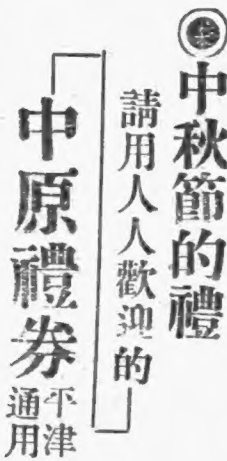 中秋節的禮
請用人人歡迎的
中原禮券
平津
通用